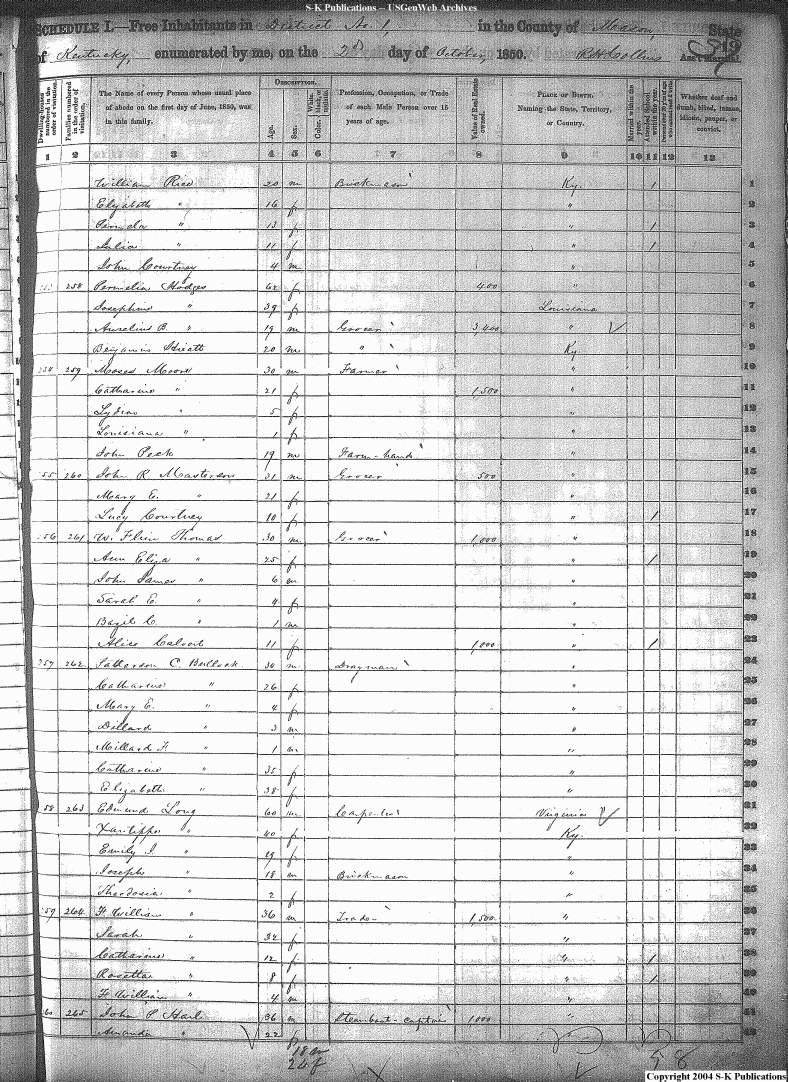 S-K Publications -- USGenWeb Archives
SCHEDULE I.—Free Inhabitants in District No. 1, in the County of Mason, State
of Kentucky, enumerated by me, on the 2d day of October, 1850. R H Collins Ass't Marshal.
Dwelling-houses numbered in the order of visitation. Families numbered in the order of visitation. The Name of every Person whose usual place of abode on the first day of June, 1850, was in this family. DESCRIPTION. Age. Sex. Color, White, black, or mulatto. Profession, Occupation, or Trade of each Male Person over 15 years of age. Value of Real Estate owned. PLACE OF BIRTH. Naming the State, Territory, or Country. Married within the year. Attended School within the year. Whether deaf and dumb, blind, insane, idiotic, pauper, or convict.
1 2 3 4 5 6 7 8 9 10 11 12 13
William Rice 20 m Brickmason Ky. / 1
Elizabeth " 16 f " 2
" 13 f " / 3
Julia " 11 f " / 4
John Courtney 4 m " 5
258 Permelia Hodges 62 f 400 " 6
Josephine " 39 f Louisiana 7
Aurelius B. " 19 m Grocer 3,400 " 8
Benjamin 20 m " Ky. 9
259 Moses Moore 30 m Farmer " 10
Catharine " 21 f 1,500 " 11
" 5 f " 12
Louisiana " 1 f " 13
John Peck 19 m Farm-hand " 14
55 260 John R. Masterson 31 m Grocer 500 " 15
Mary E. " 21 f " 16
Lucy Courtney 10 f " / 17
56 261 W. Thomas 30 m Grocer 1,000 " 18
Ann Eliza " 25 f " / 19
John James " 6 m " 20
Sarah E. " 4 f " 21
Bazil C. " 1 m " 22
Alice Calvert 11 f 1,000 " / 23
257 262 Patterson C. Bullock 30 m Drayman " 24
Catharine " 26 f " 25
Mary E. " 4 f " 26
Dillard " 3 m " 27
Millard F " 1 m " 28
Catharine " 35 f " 29
Elizabeth " 38 f " 30
58 263 Edmund Long 60 m Carpenter Virginia 31
Xantippe " 40 f Ky. 32
Emily J. " 19 f " 33
Joseph " 18 m Brickmason " 34
Theodosia " 2 f " 35
259 264 F. William " 36 m Trader 1,500 " 36
Sarah " 32 f " 37
Catharine " 12 f " / 38
Rosetta " 8 f " / 39
F. William " 4 m " 40
60 265 John P. Harl 36 m Steamboat-captain 1,000 " 41
Amanda " 22 f 42
18 m
24 f
5 8
Copyright 2004 S-K Publications